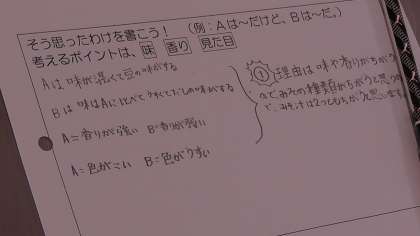 そう思ったわけを書こう！（例：Aは～だけど、Bは～だ。）
考えるポイントは、味 香り 見た目
Aは味が濃くて豆の味がする
Bは味はAに比べてうすくて の味がする
A＝香りが強い B＝香りが弱い
A＝色がこい B＝色がうすい
① 理由は味や香りがちがう
で、みその種類がちがうと思うの
で、みそ汁は2つともちがうと思います。